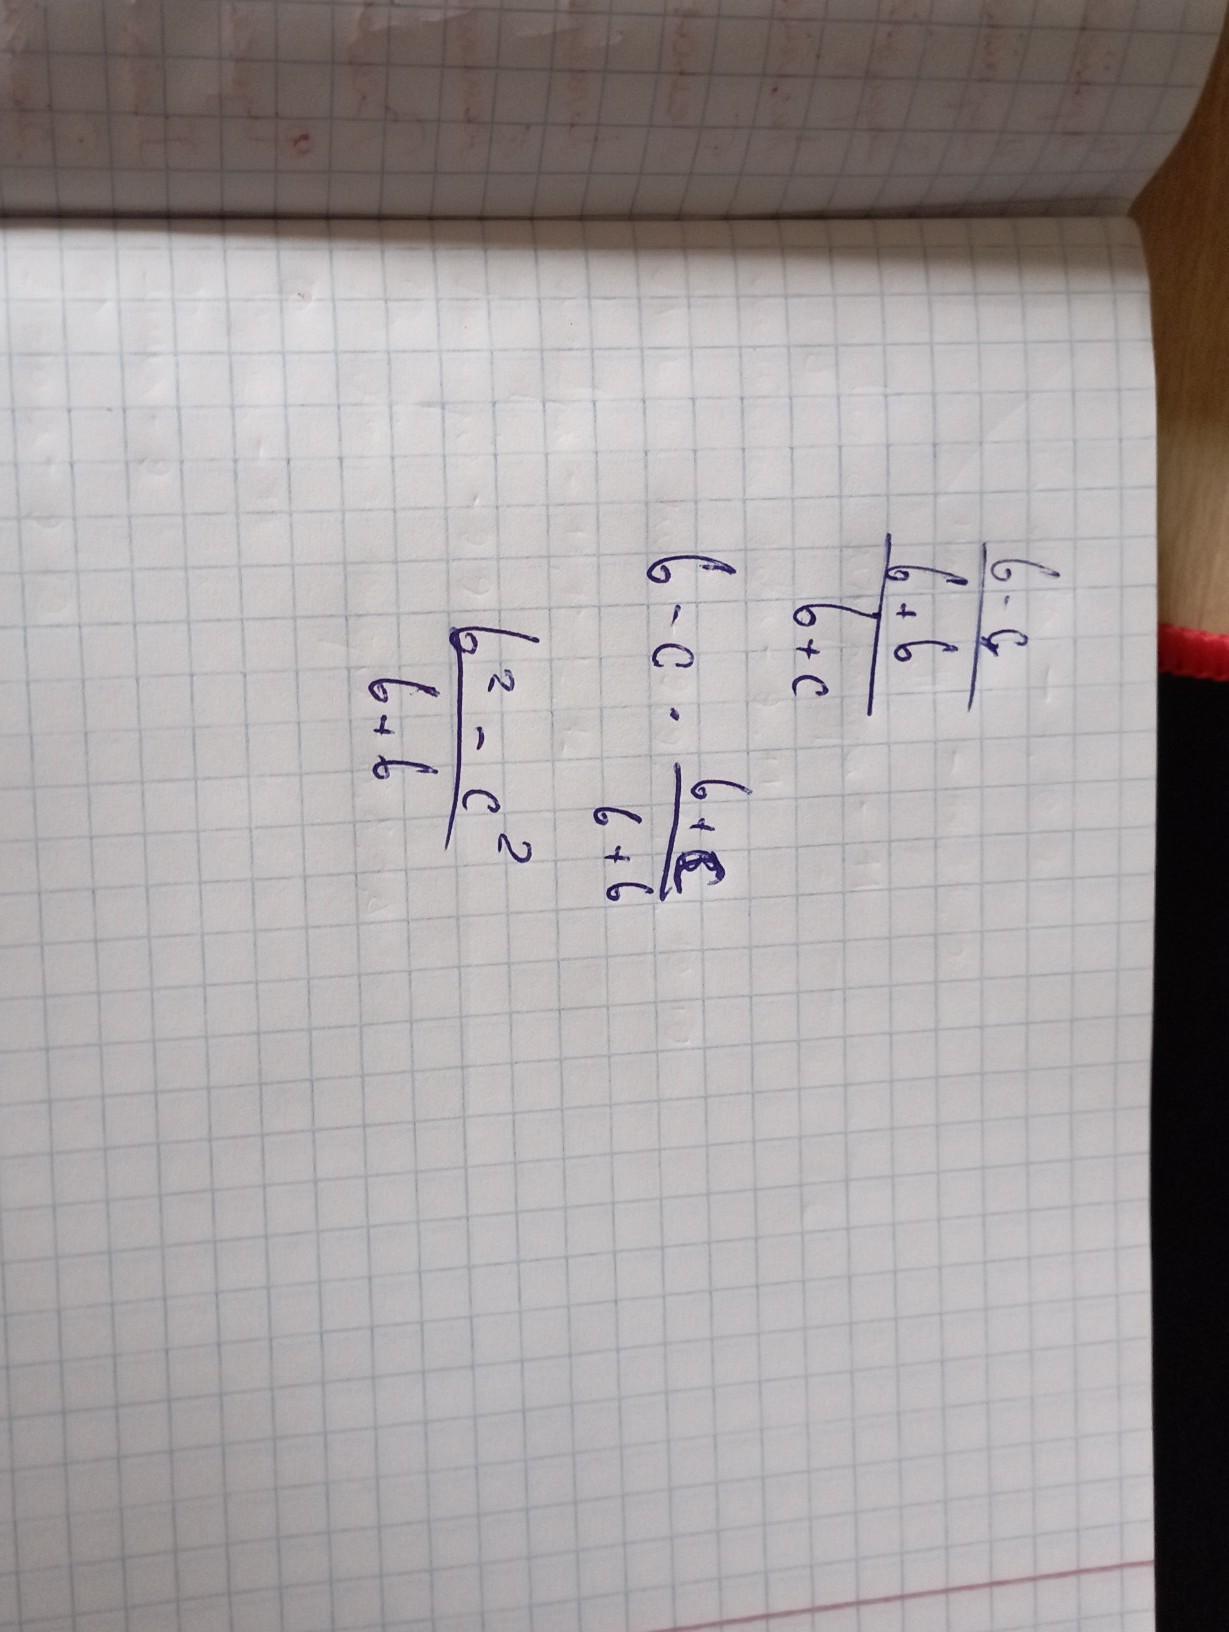 b - c
b + b
b + c
b - c · b + c
b + b
b² - c²
b + b